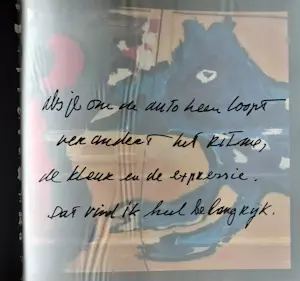 Als je om de auto heen loopt
verandert het ritme,
de kleur en de expressie.
Dat vind ik heel belangrijk.